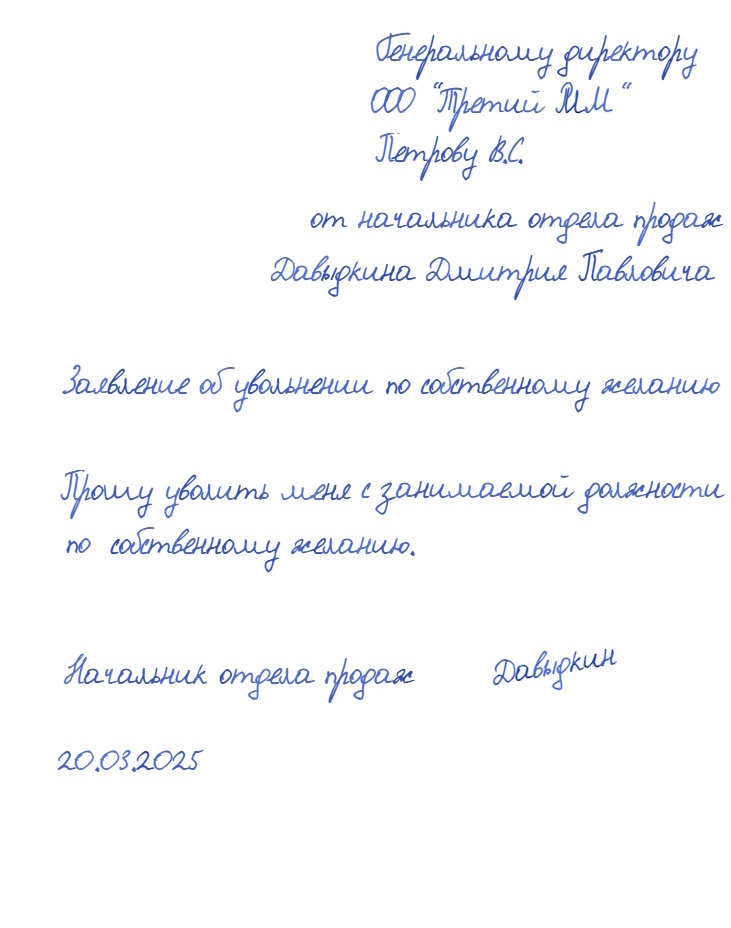 Генеральному директору
ООО "Третий РИМ"
Петрову В.С.
от начальника отдела продаж
Давыдкина Дмитрия Павловича
Заявление об увольнении по собственному желанию
Прошу уволить меня с занимаемой должности
по собственному желанию.
Начальник отдела продаж Давыдкин
20.03.2025